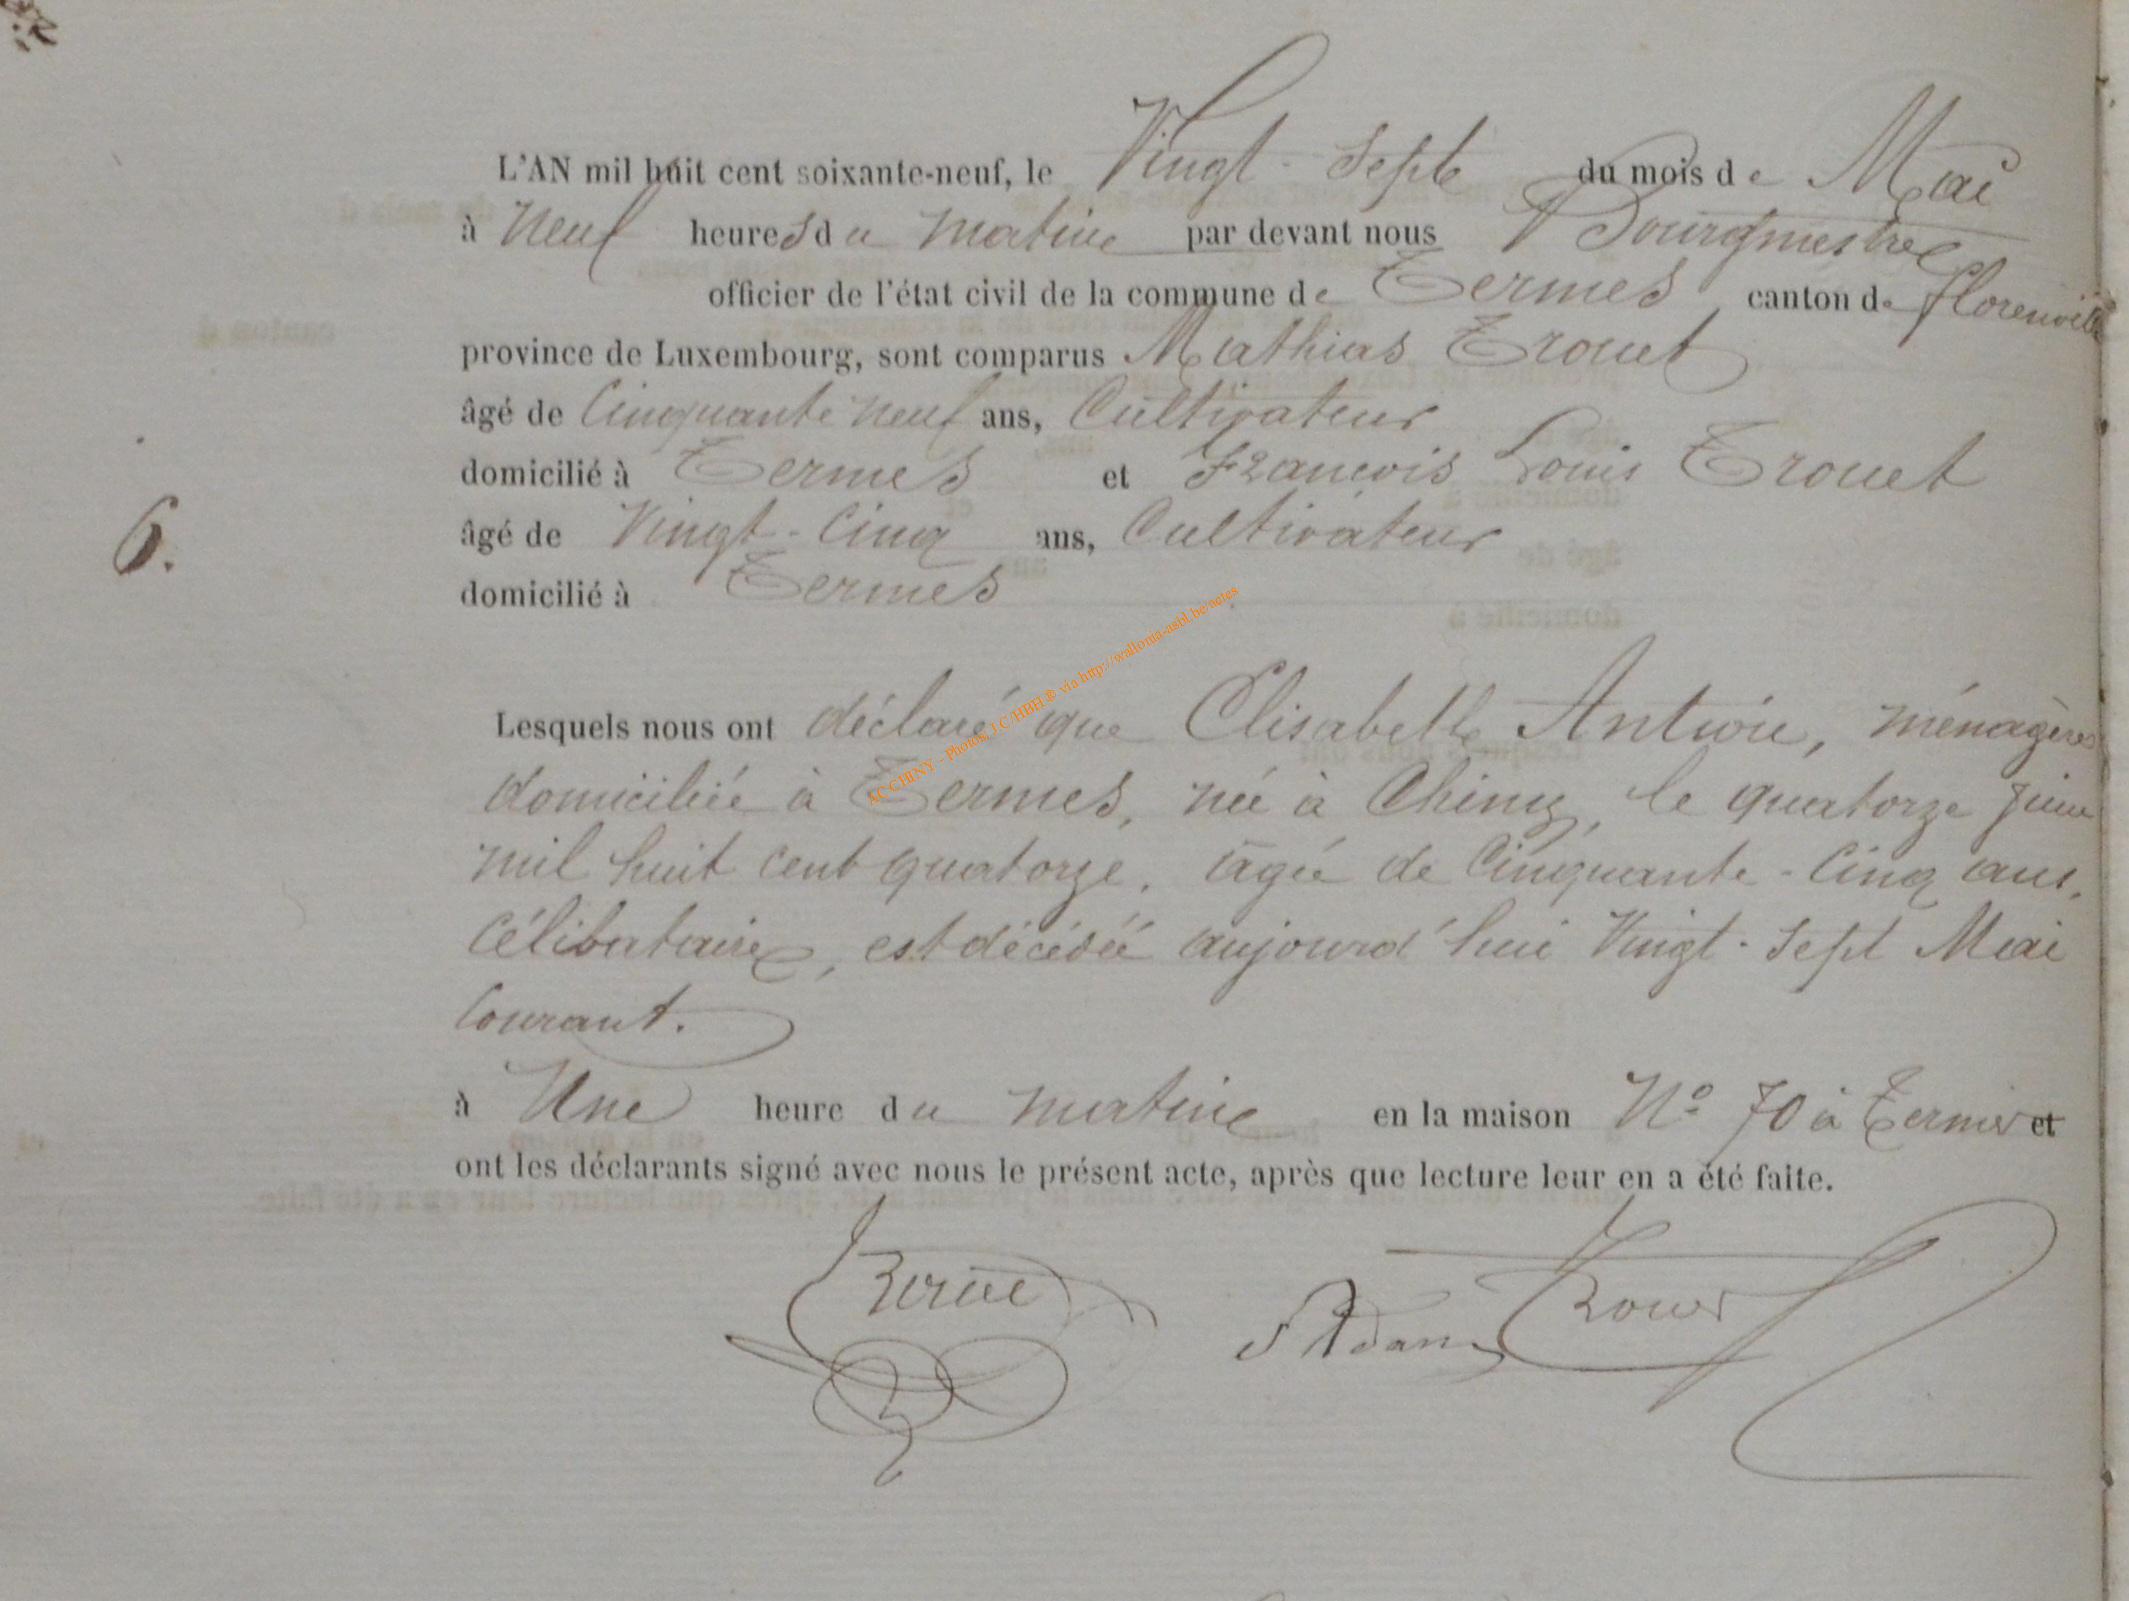 L'AN mil huit cent soixante-neuf, le Vingt-Sept du mois de Mai
à Neuf heures du matin par devant nous Bourgmestre
officier de l'état civil de la commune de Termes, canton de Florenville
province de Luxembourg, sont comparus Mathias Trouet
âgé de Cinquante neuf ans, Cultivateur
domicilié à Termes et François Louis Trouet
6.
âgé de Vingt-Cinq ans, Cultivateur
domicilié à Termes
Lesquels nous ont déclaré que Elisabeth Antoine, ménagère
domiciliée à Termes, née à Chiny, le quatorze Juin
mil huit cent quatorze, âgée de Cinquante-Cinq ans,
Célibataire, est décédée aujourd'hui Vingt-Sept Mai
Courant.
à Une heure du matin en la maison N° 70 à Termes et
ont les déclarants signé avec nous le présent acte, après que lecture leur en a été faite.
AC CHINY - Photos J.C/HBH © via http://wallonia-asbl.be/actes